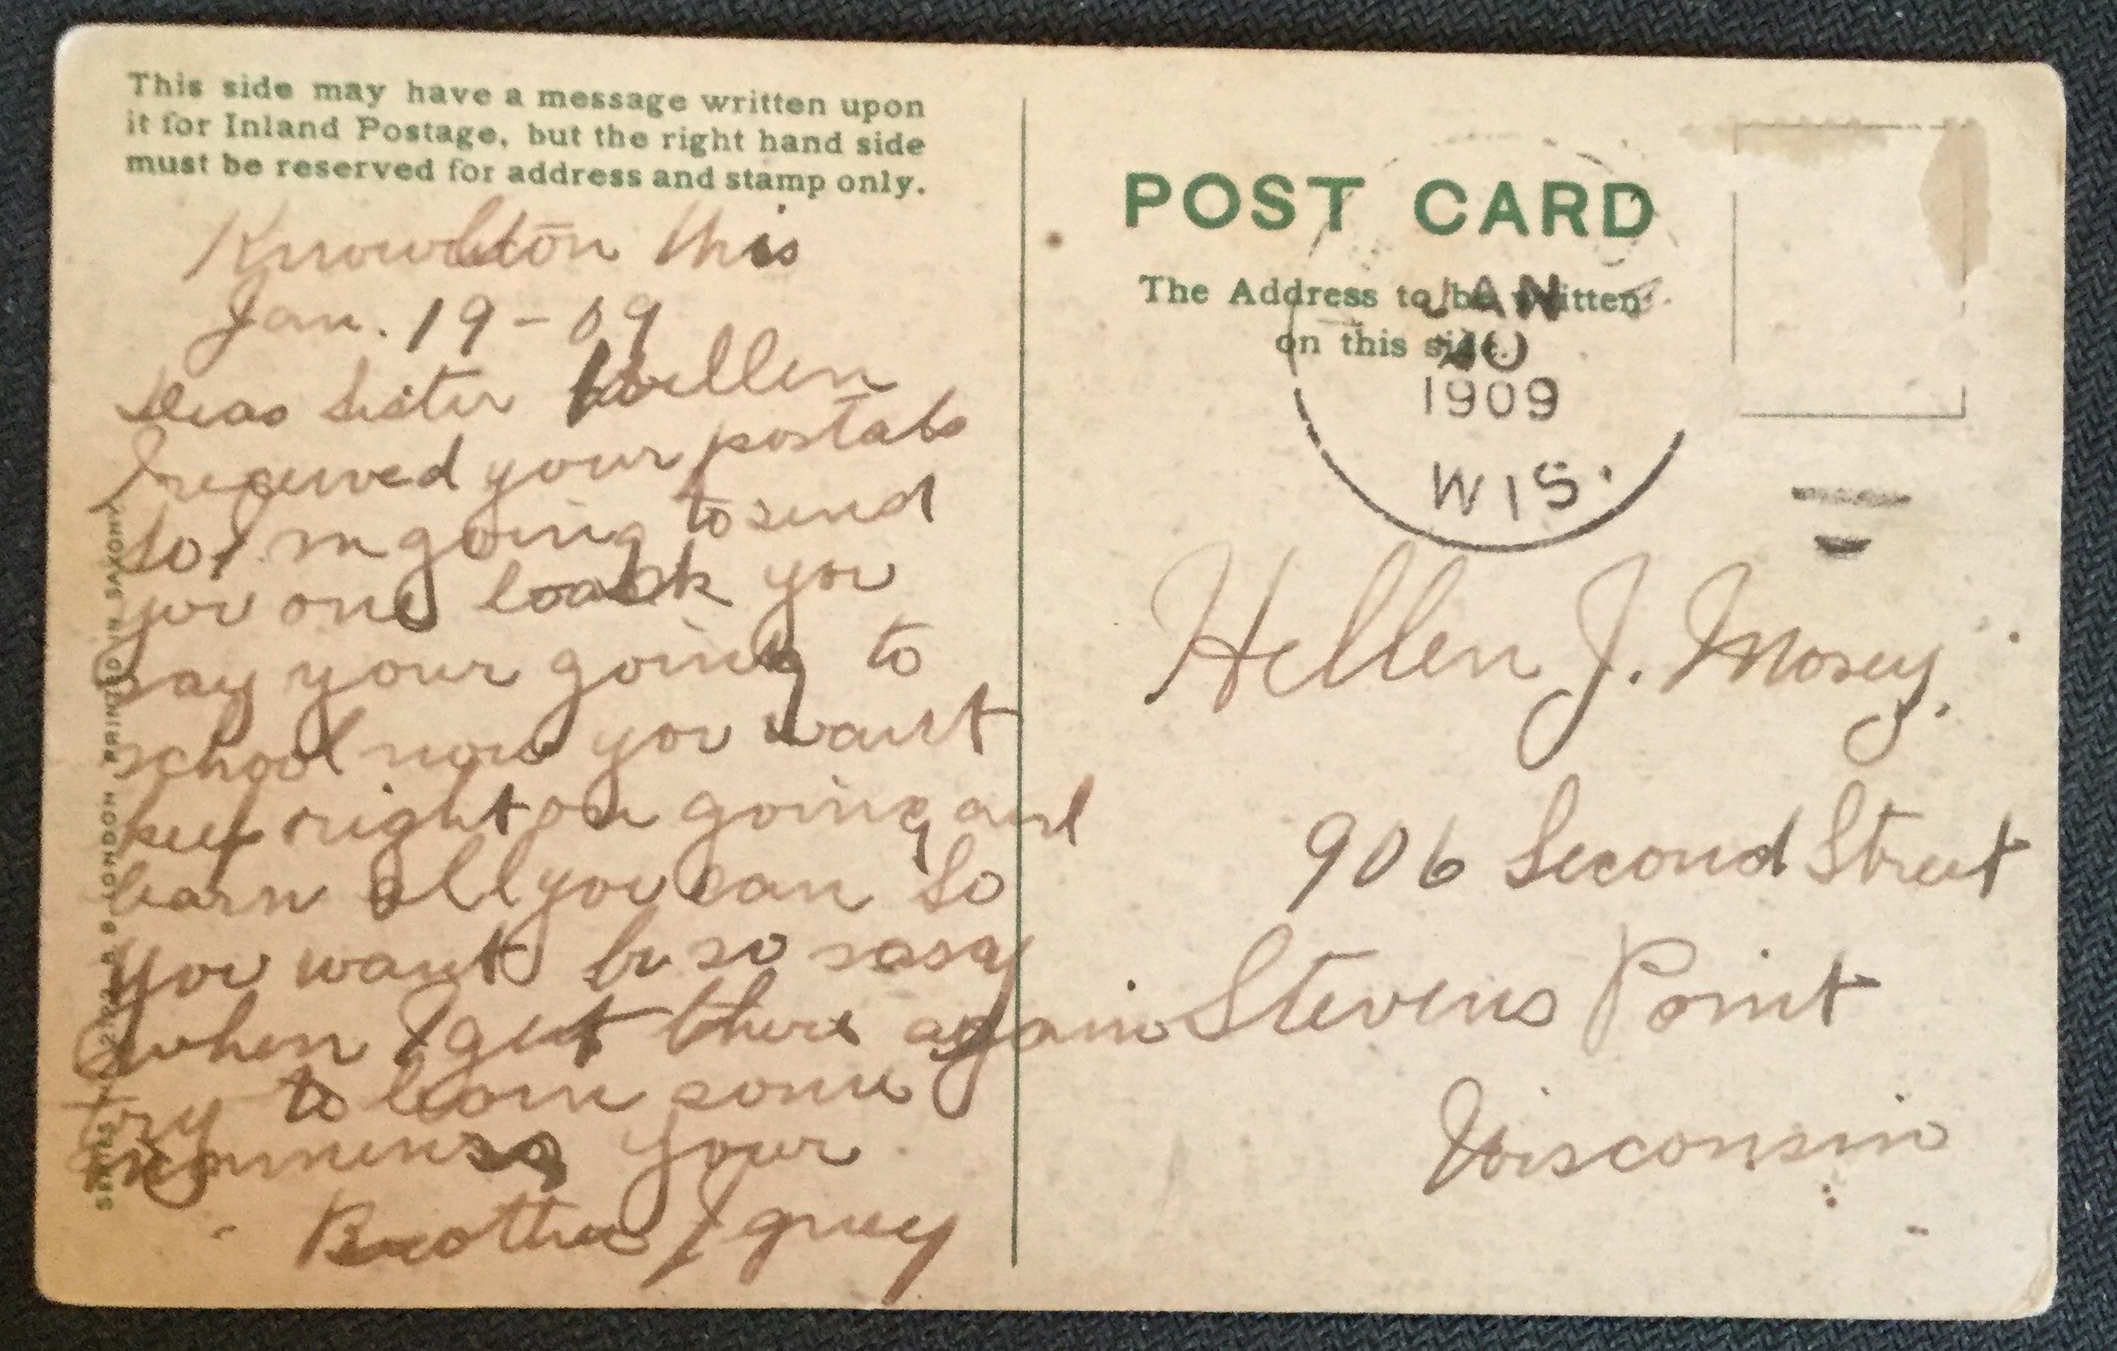 This side may have a message written upon
it for Inland Postage, but the right hand side
must be reserved for address and stamp only.
Knowlton this
Jan. 19-09
Dear Sister Hellen
I received your postals
So I m going to send
you one back you
say your going to
school now you want
keep right on going and
learn all you can So
you want be so sasay
when I get there again
try to learn some
your
Brother
POST CARD
The Address to be written
on this side.
JAN
20
1909
WIS.
Hellen J. Mosey.
906 Second Street
Stevens Point
Wisconsin
LONDON PRINTED IN SAXONY